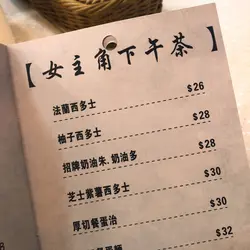 【女主角下午茶】
法蘭西多士 $26
柚子西多士 $28
招牌奶油朱.奶油多 $28
芝士紫薯西多士 $30
厚切餐蛋治 $30
$32